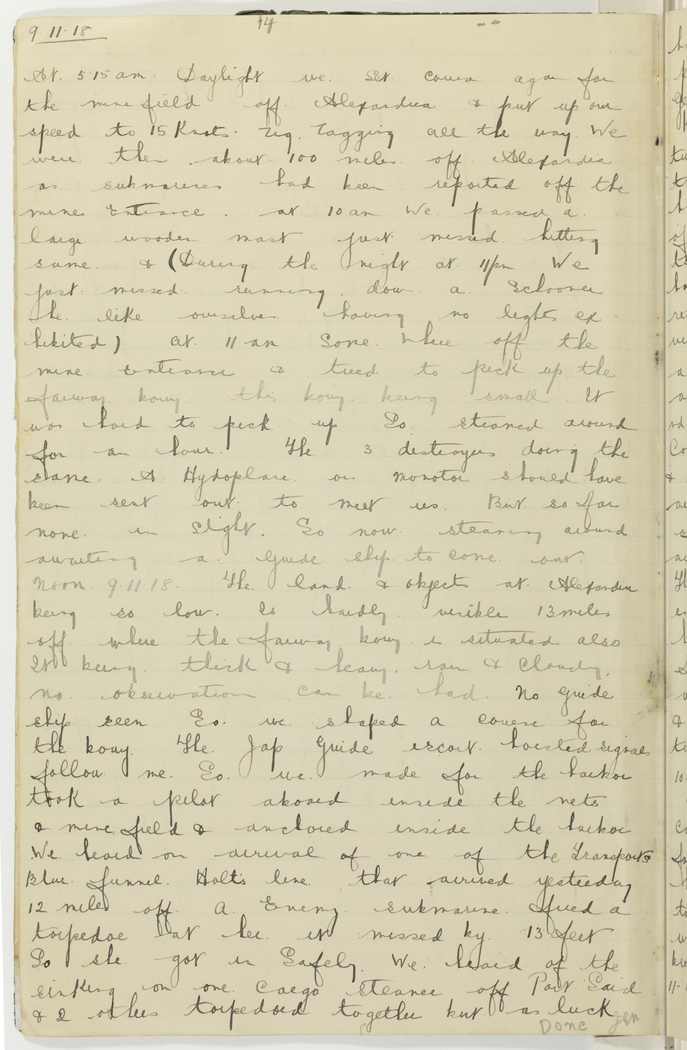 9.11.18
14
At. 515 am. Daylight we. set course again for
the mine field off. Alexandria & put up our
speed to 15 Knots. Zig. Zagging all the way. We
were then about. 100 miles off Alexandria
as submarines had been reported off the
mine Entrance. at 10 am We passed a.
large wooden mast just missed hitting
same. & (During the night at 11 pm We
just missed running. down a. Schooner
she like ourselves having no lights ex
hibited) at. 11 am Some where off the
mine Entrance & tried to pick up the
fairway bouy. this bouy being small. It
was hard to pick up So. steamed around
for an hour. The 3 destroyers doing the
same. A Hydoplane or monotor should have
been sent out to meet us. But so far
none. in Slight. So now steaming around
awaiting a. Guide ship to come out.
Noon. 9.11.18. The land & objects at Alexandria
being so low. Is hardly visible 13 miles
off where the fairway bouy is situated also
It being. thick & heavy. rain & Cloudy,
no. observation can be had. No guide
ship seen So. we shaped a course for
the bouy. The. Jap Guide escort. hoisted signal
follow me. So. we. made for the harbor
took a pilot aboard inside the nets
& mine field & anchored inside the harbor
We heard on arrival of one of the Transports
Blue. funnel. Holts line that arrived yesterday
12 miles off A Enemy submarine. fired a
torpedoe at her it missed by. 13 feet
So she got in Safely. We. heard of the
sinking on one Cargo steamer off Port Said
& 2 others torpedoed together but as luck
Done Jen